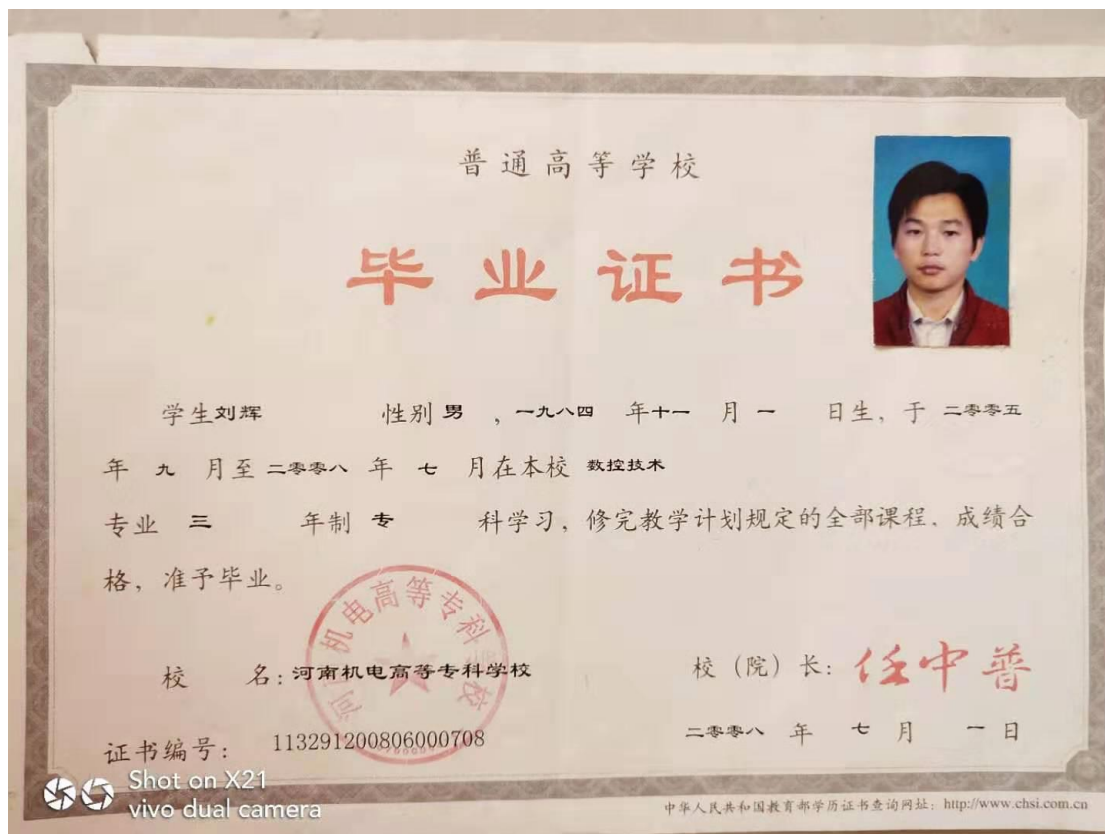 普通高等学校
毕业证书
学生刘辉 性别男，一九八四年十一月一日生，于二零零五
年九月至二零零八年七月在本校数控技术
专业三年制专科学习，修完教学计划规定的全部课程，成绩合
格，准予毕业。
河南机电高等专科学校
校 名：河南机电高等专科学校
校（院）长：任中普
二零零八年七月一日
证书编号：113291200806000708
Shot on X21
vivo dual camera
中华人民共和国教育部学历证书查询网址：http://www.chsi.com.cn